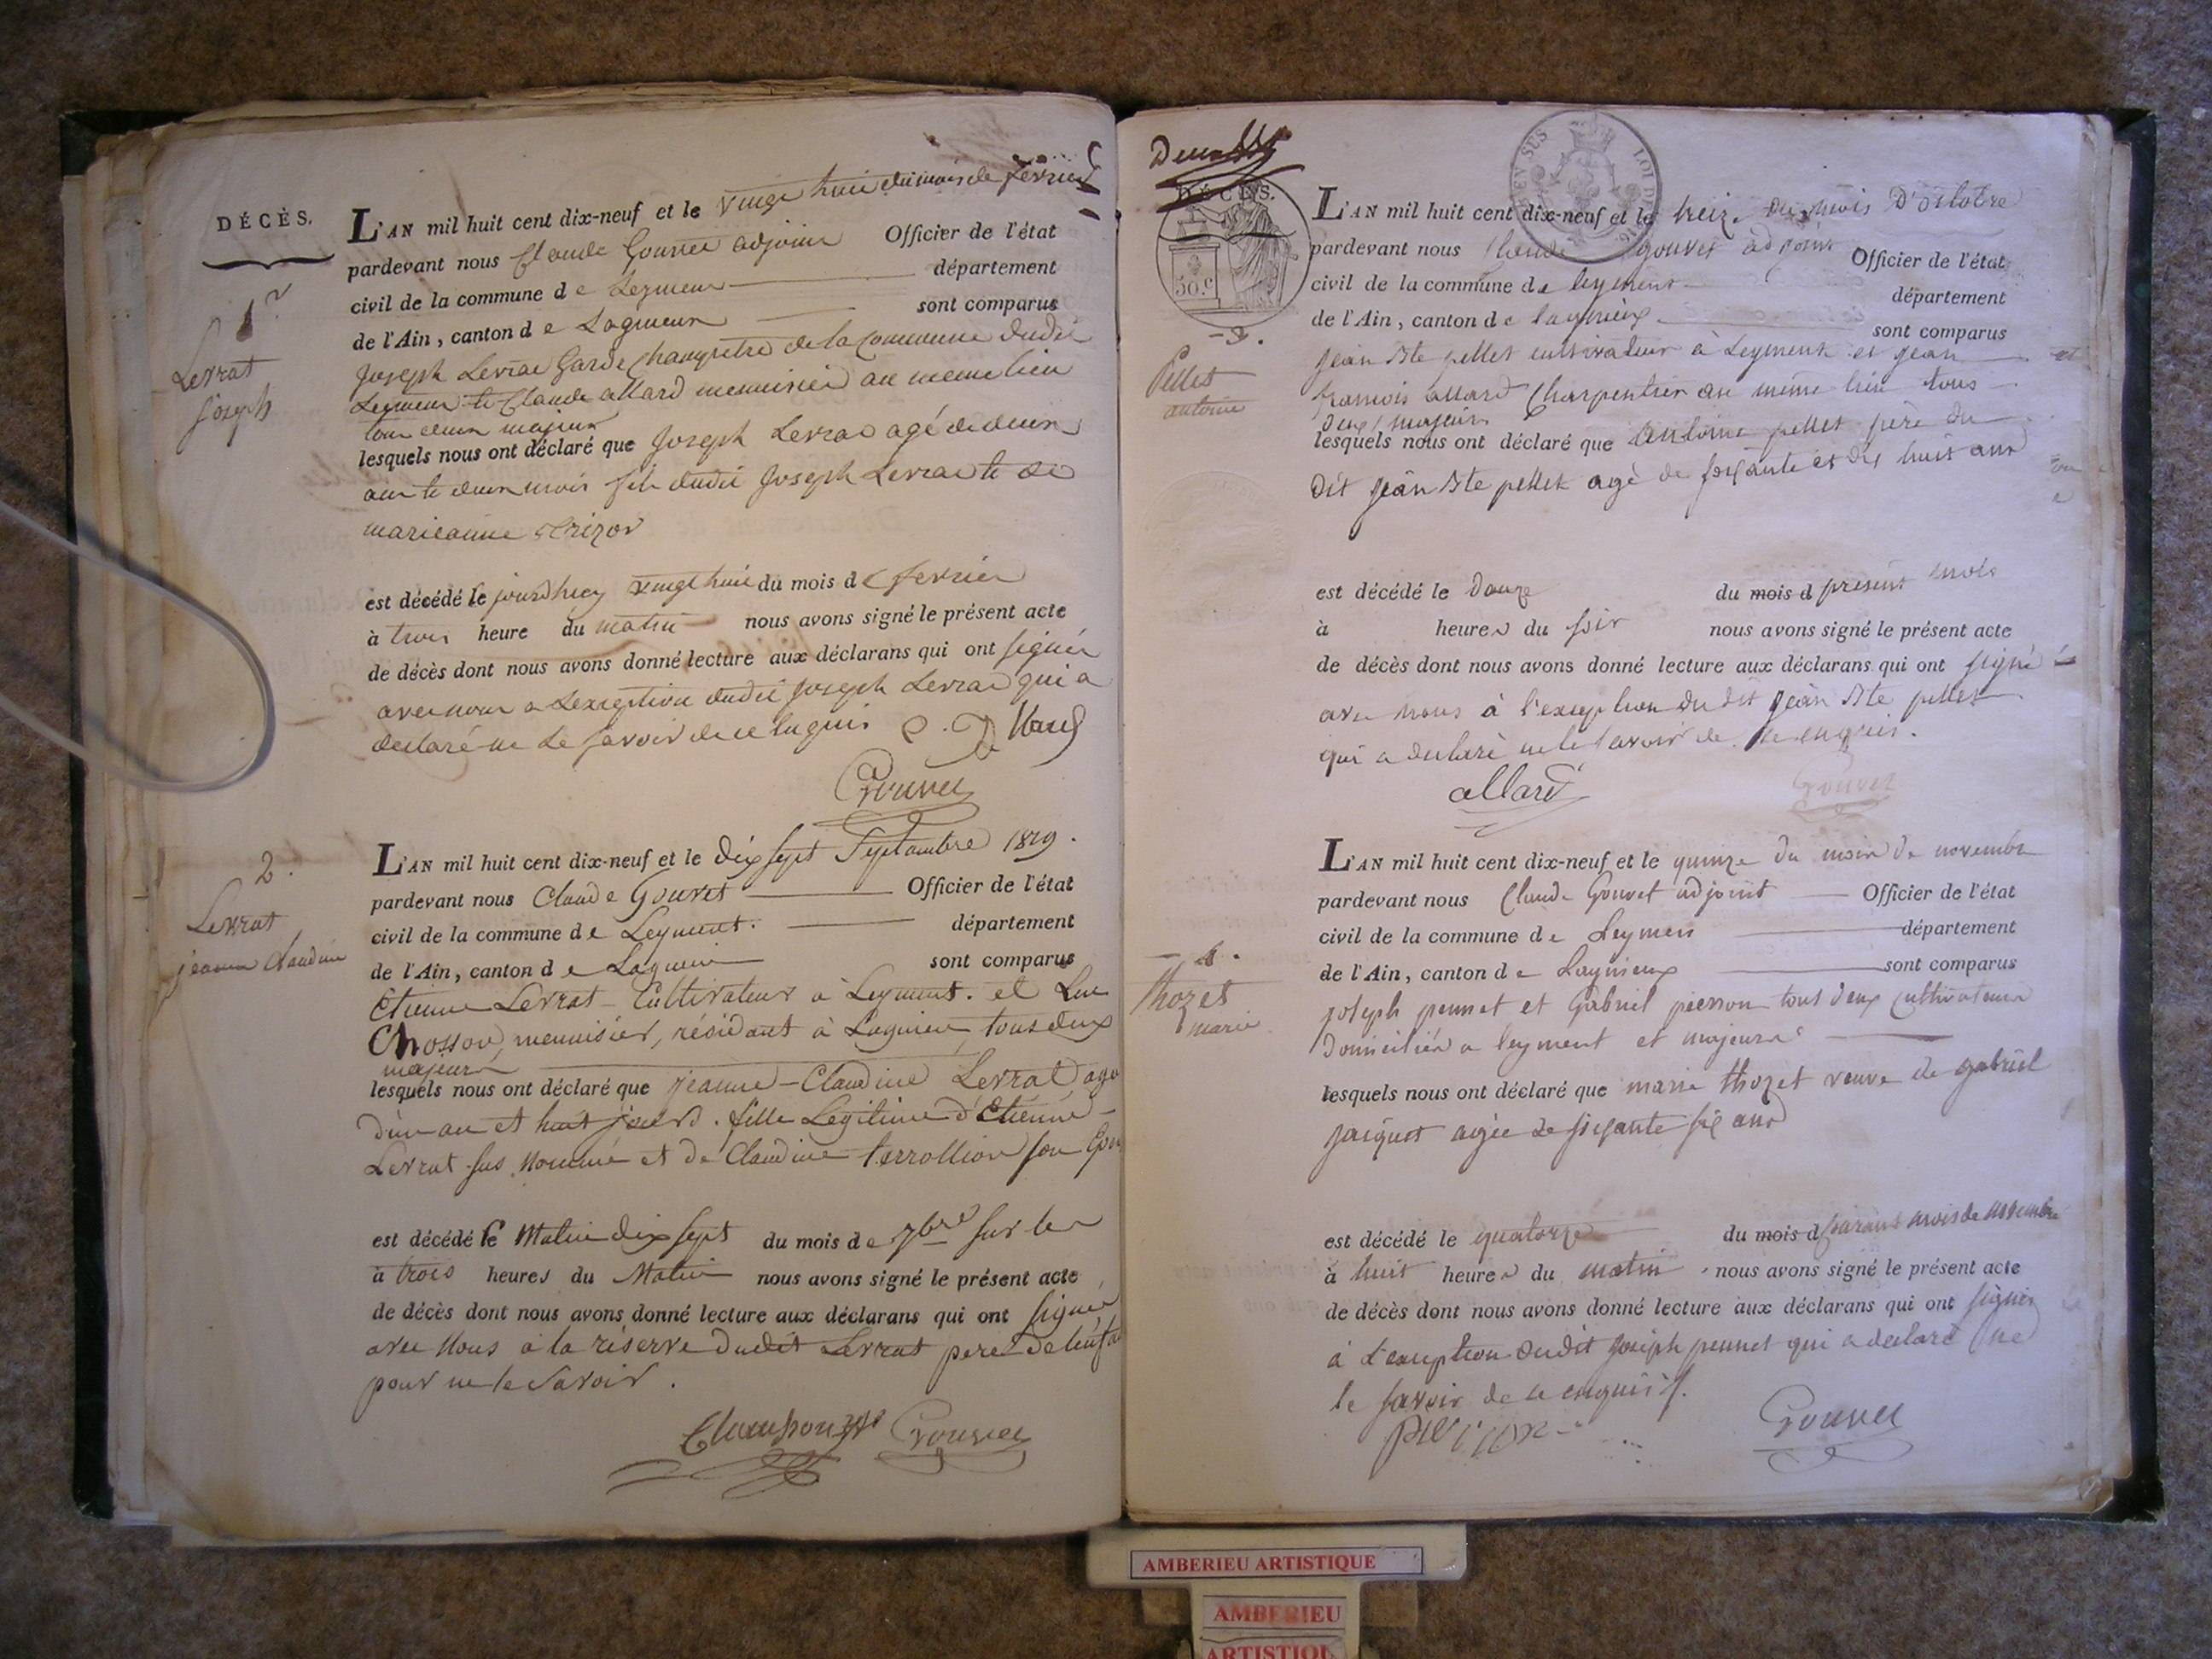 DÉCÈS.
1er
Levrat
joseph
L'AN mil huit cent dix-neuf et le vingt huit du mois de fevrier
pardevant nous Claude Gouvet adjoint Officier de l'état
civil de la commune de Leyment département
de l'Ain, canton de Lagnieux sont comparus
Joseph Levrat Garde Champetre de la Commune dudit
Leyment et Claude allard menuisier au meme lieu
tous deux majeurs
lesquels nous ont déclaré que Joseph Levrat agé de deux
ans et deux mois fils dudit Joseph Levrat et de
marieanne
est décédé le jourdhuy vingt huit du mois de fevrier
à trois heure du matin nous avons signé le présent acte
de décès dont nous avons donné lecture aux déclarans qui ont signés
avec nous a Lexception dudit Joseph Levrat qui a
declaré ne Le savoir de ce enquis
Gouvet
2.
Levrat
jeanne Claudine
L'AN mil huit cent dix-neuf et le dix sept Septembre 1819.
pardevant nous Claude Gouvet Officier de l'état
civil de la commune de Leyment. département
de l'Ain, canton de Lagnieu sont comparus
Etienne Levrat Cultivateur à Leyment. et Luc
menuisier, résidant à Lagnieu, tous deux
majeurs
lesquels nous ont déclaré que jeanne-Claudine Levrat age
d'un an et huit jours. fille Légitime d'Etienne
Levrat sus nommé et de Claudine terrollion son
est décédé le Matin dix sept du mois de 7bre sur les
à trois heures du Matin nous avons signé le présent acte
de décès dont nous avons donné lecture aux déclarans qui ont signé
avec nous a la réserve dudit Levrat pere de
pour ne le Savoir.
Gouvet
DÉCÈS.
50.c
3.
Pellet
antoine
L'AN mil huit cent dix-neuf et le treize du mois D'octobre
pardevant nous Claude gouvet adjoint Officier de l'état
civil de la commune de leyment département
de l'Ain, canton de lagnieux sont comparus
jean Bte pellet cultivateur à Leyment et jean
francois allard Charpentier au même lieu tous
deux majeurs
lesquels nous ont déclaré que antoine pellet père du
dit jean Bte pellet agé de soixante et dix huit ans
est décédé le Douze du mois d présent mois
à heures du soir nous avons signé le présent acte
de décès dont nous avons donné lecture aux déclarans qui ont signé
avec nous à l'exception du dit jean Bte pellet
qui a declaré ne le savoir de ce enquis.
allard
Gouvet
4.
thozet
marie
L'AN mil huit cent dix-neuf et le quinze du mois de novembre
pardevant nous Claude Gouvet adjoint Officier de l'état
civil de la commune de Leyment département
de l'Ain, canton de Lagnieux sont comparus
joseph peunet et Gabriel pierson tout deux cultivateurs
Domiciliés a leyment et majeurs
lesquels nous ont déclaré que marie thozet veuve de gabriel
jacquet agée de sixante six ans
est décédé le quatorze du mois d courant mois de novembre
à huit heures du matin nous avons signé le présent acte
de décès dont nous avons donné lecture aux déclarans qui ont signés
à L'exception dudit joseph peunet qui a declaré ne
le savoir de ce enquis
Gouvet
AMBERIEU ARTISTIQUE
AMBERIEU